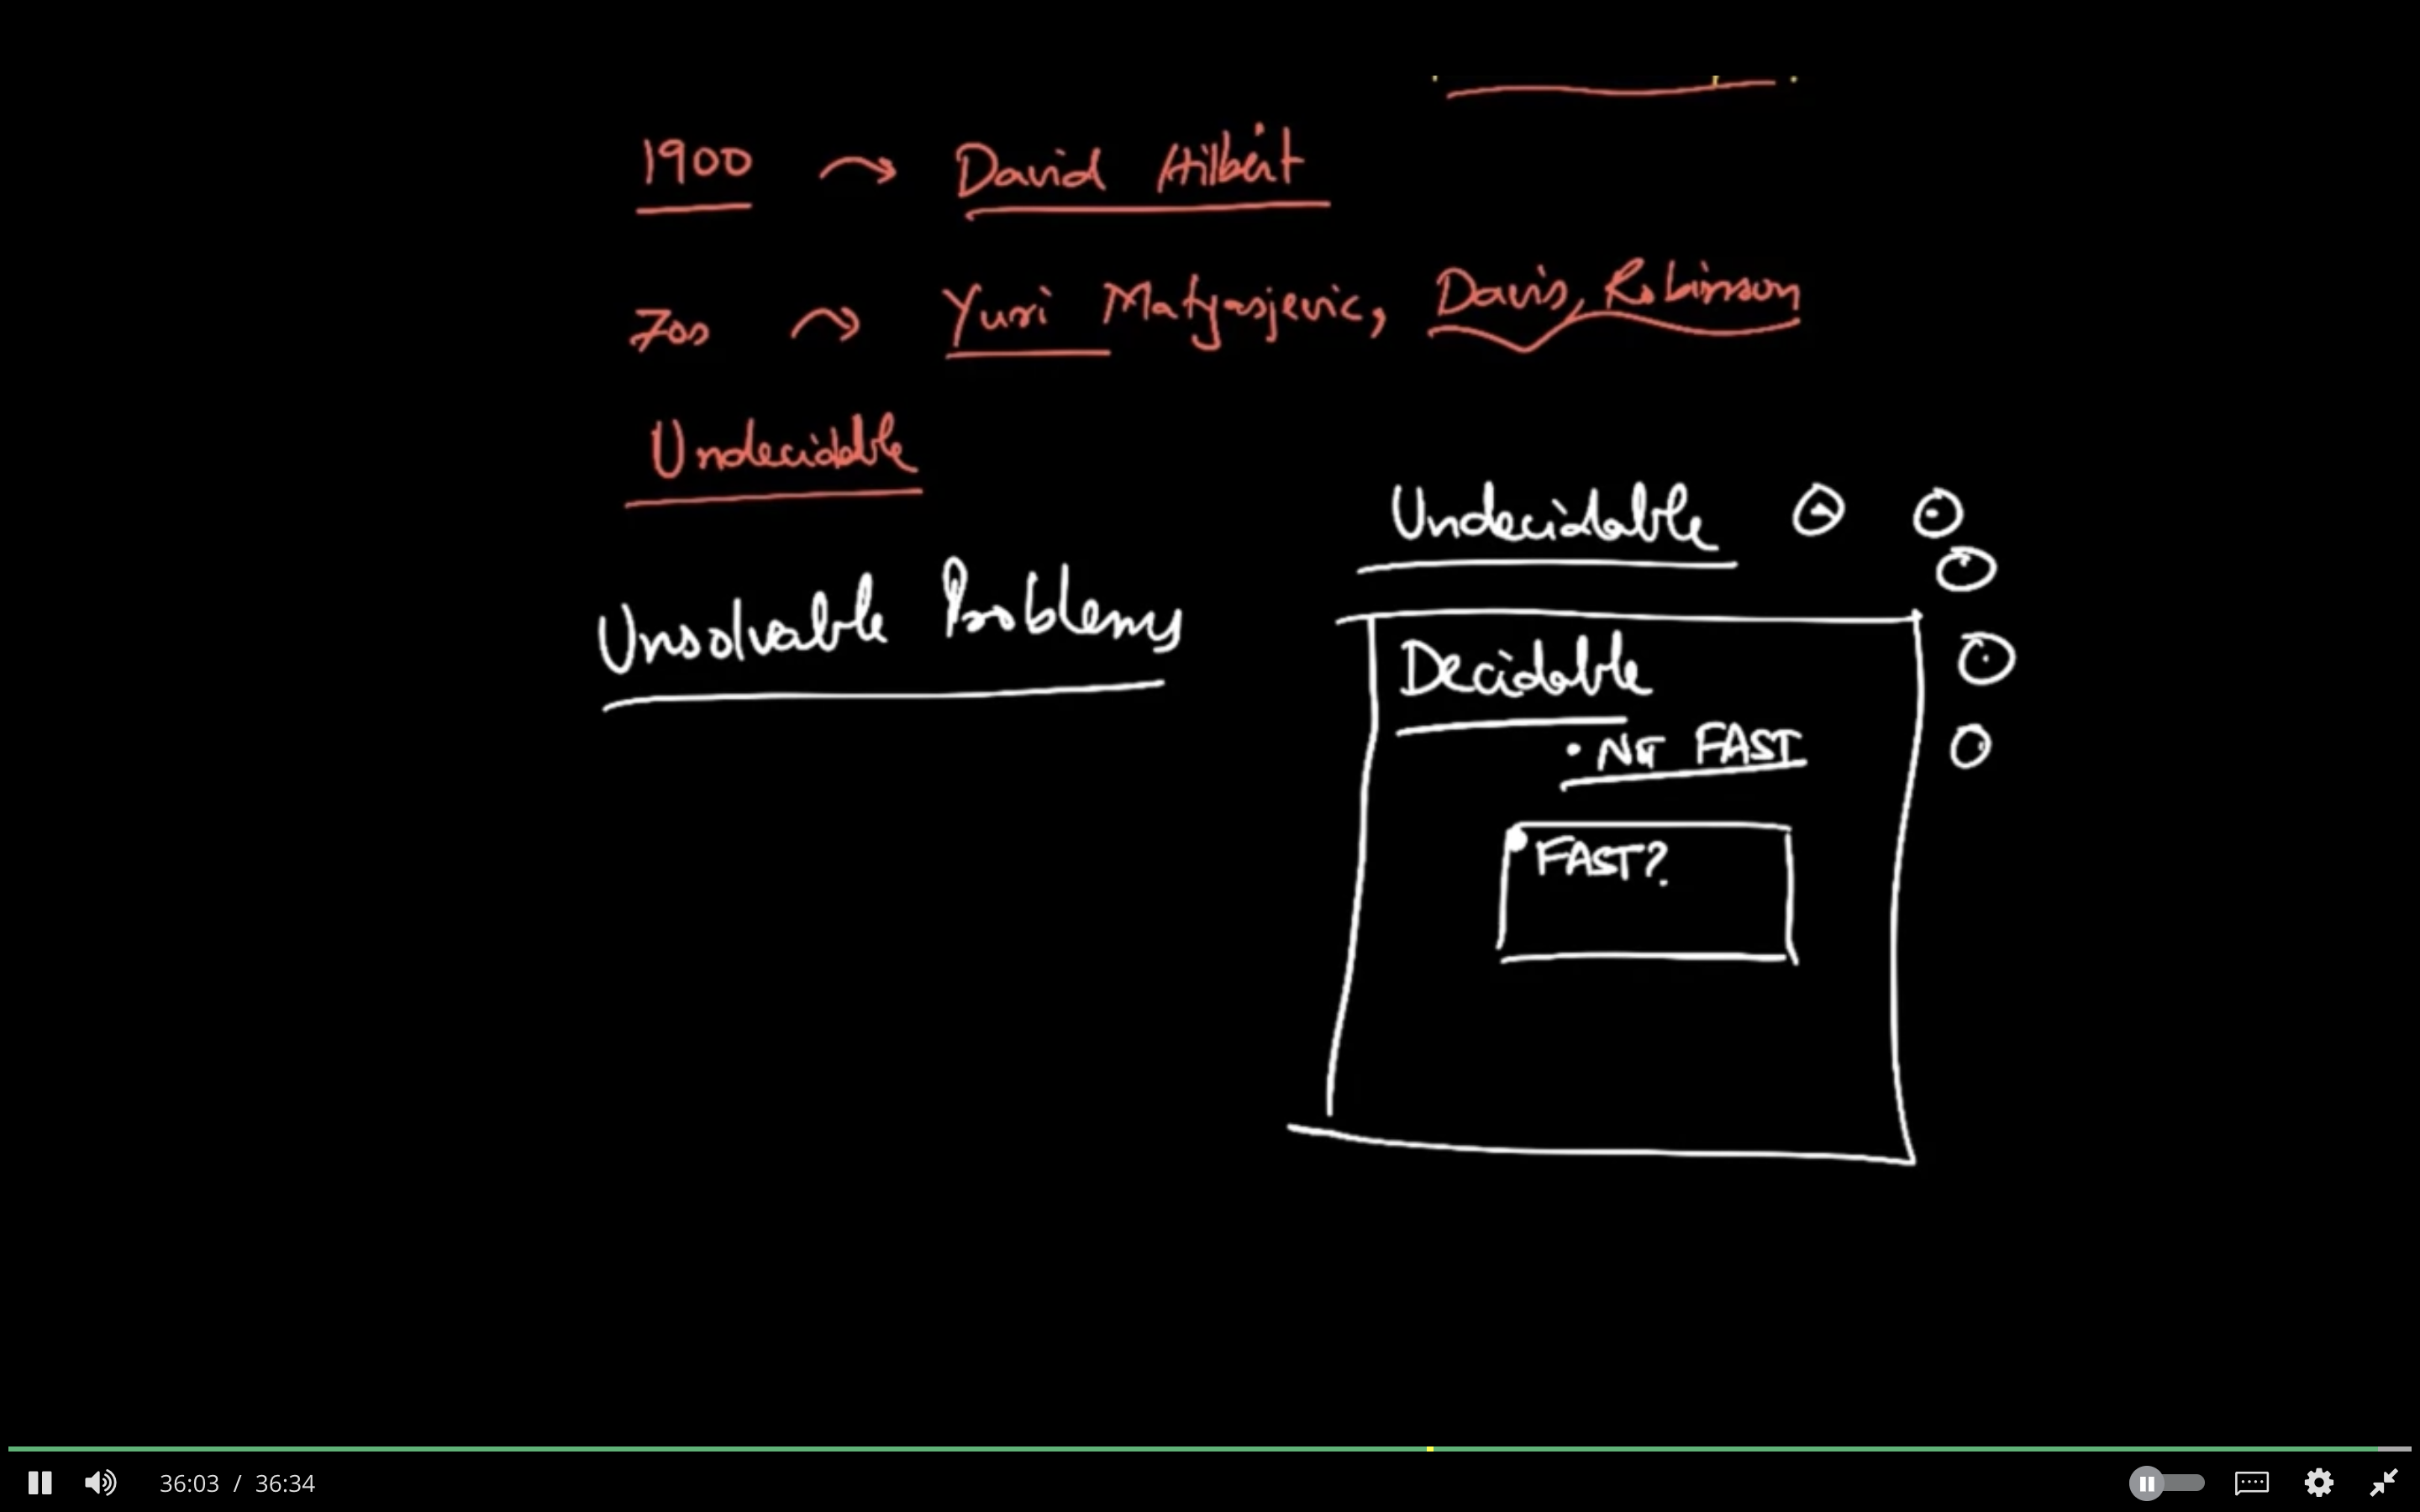 1900 David Hilbert
70s Yuri Matyasjevic, Davis, Robinson
Undecidable
Undecidable
Unsolvable Problems
Decidable
• NOT FAST
FAST?
36:03 / 36:34